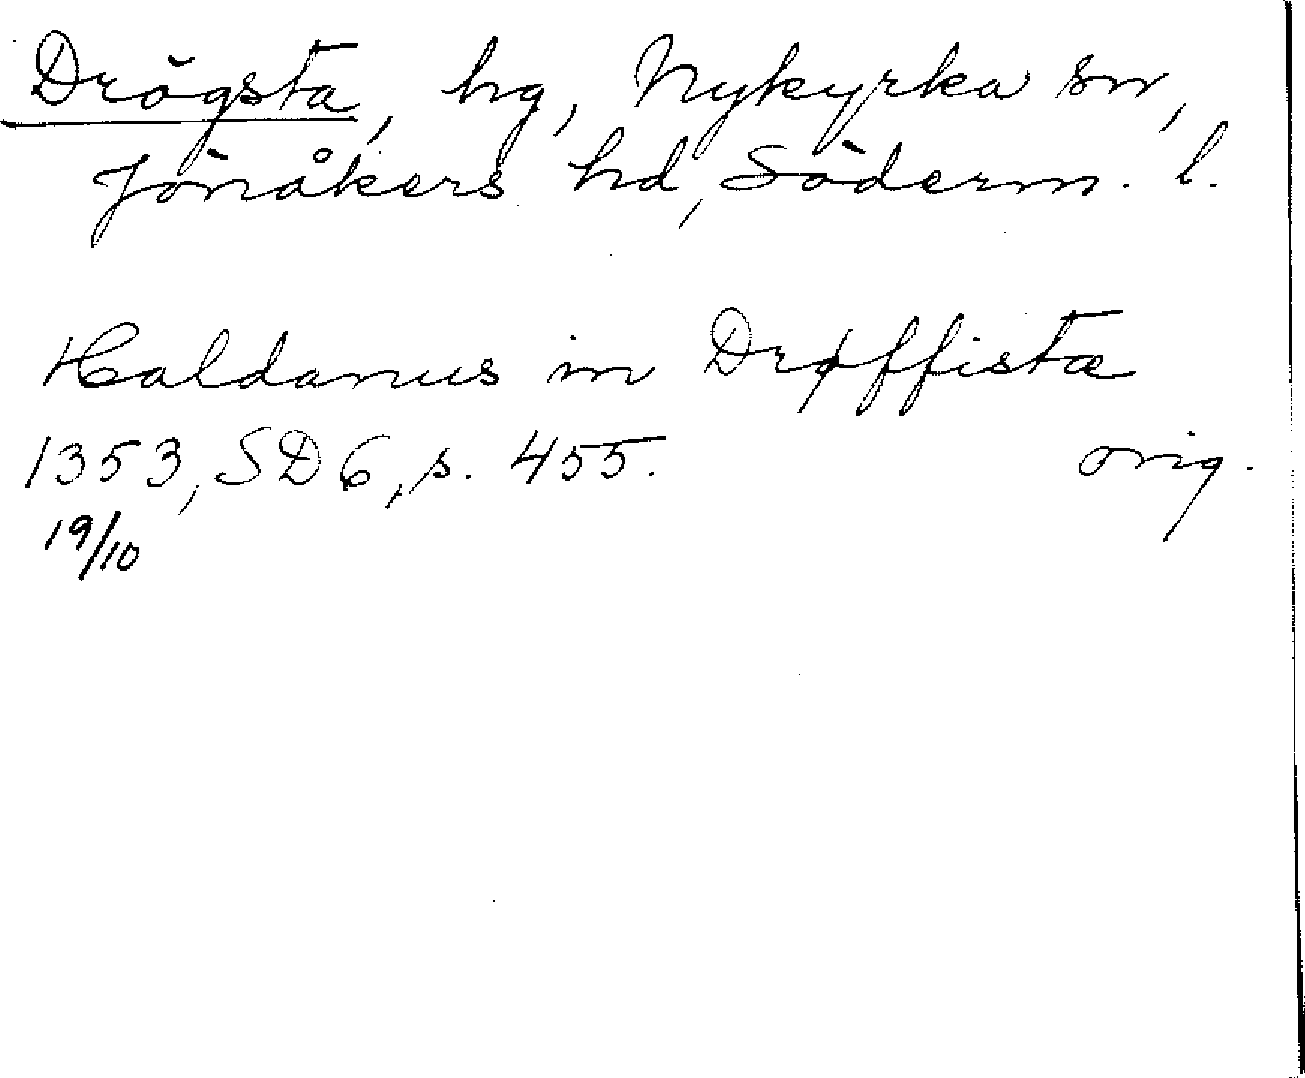 Drögsta, hg, Nykyrka sn,
Jönåkers hd, Söderm. l.
Haldanus in Drøffistæ
1353, SD 6, s. 455. orig.
19/10